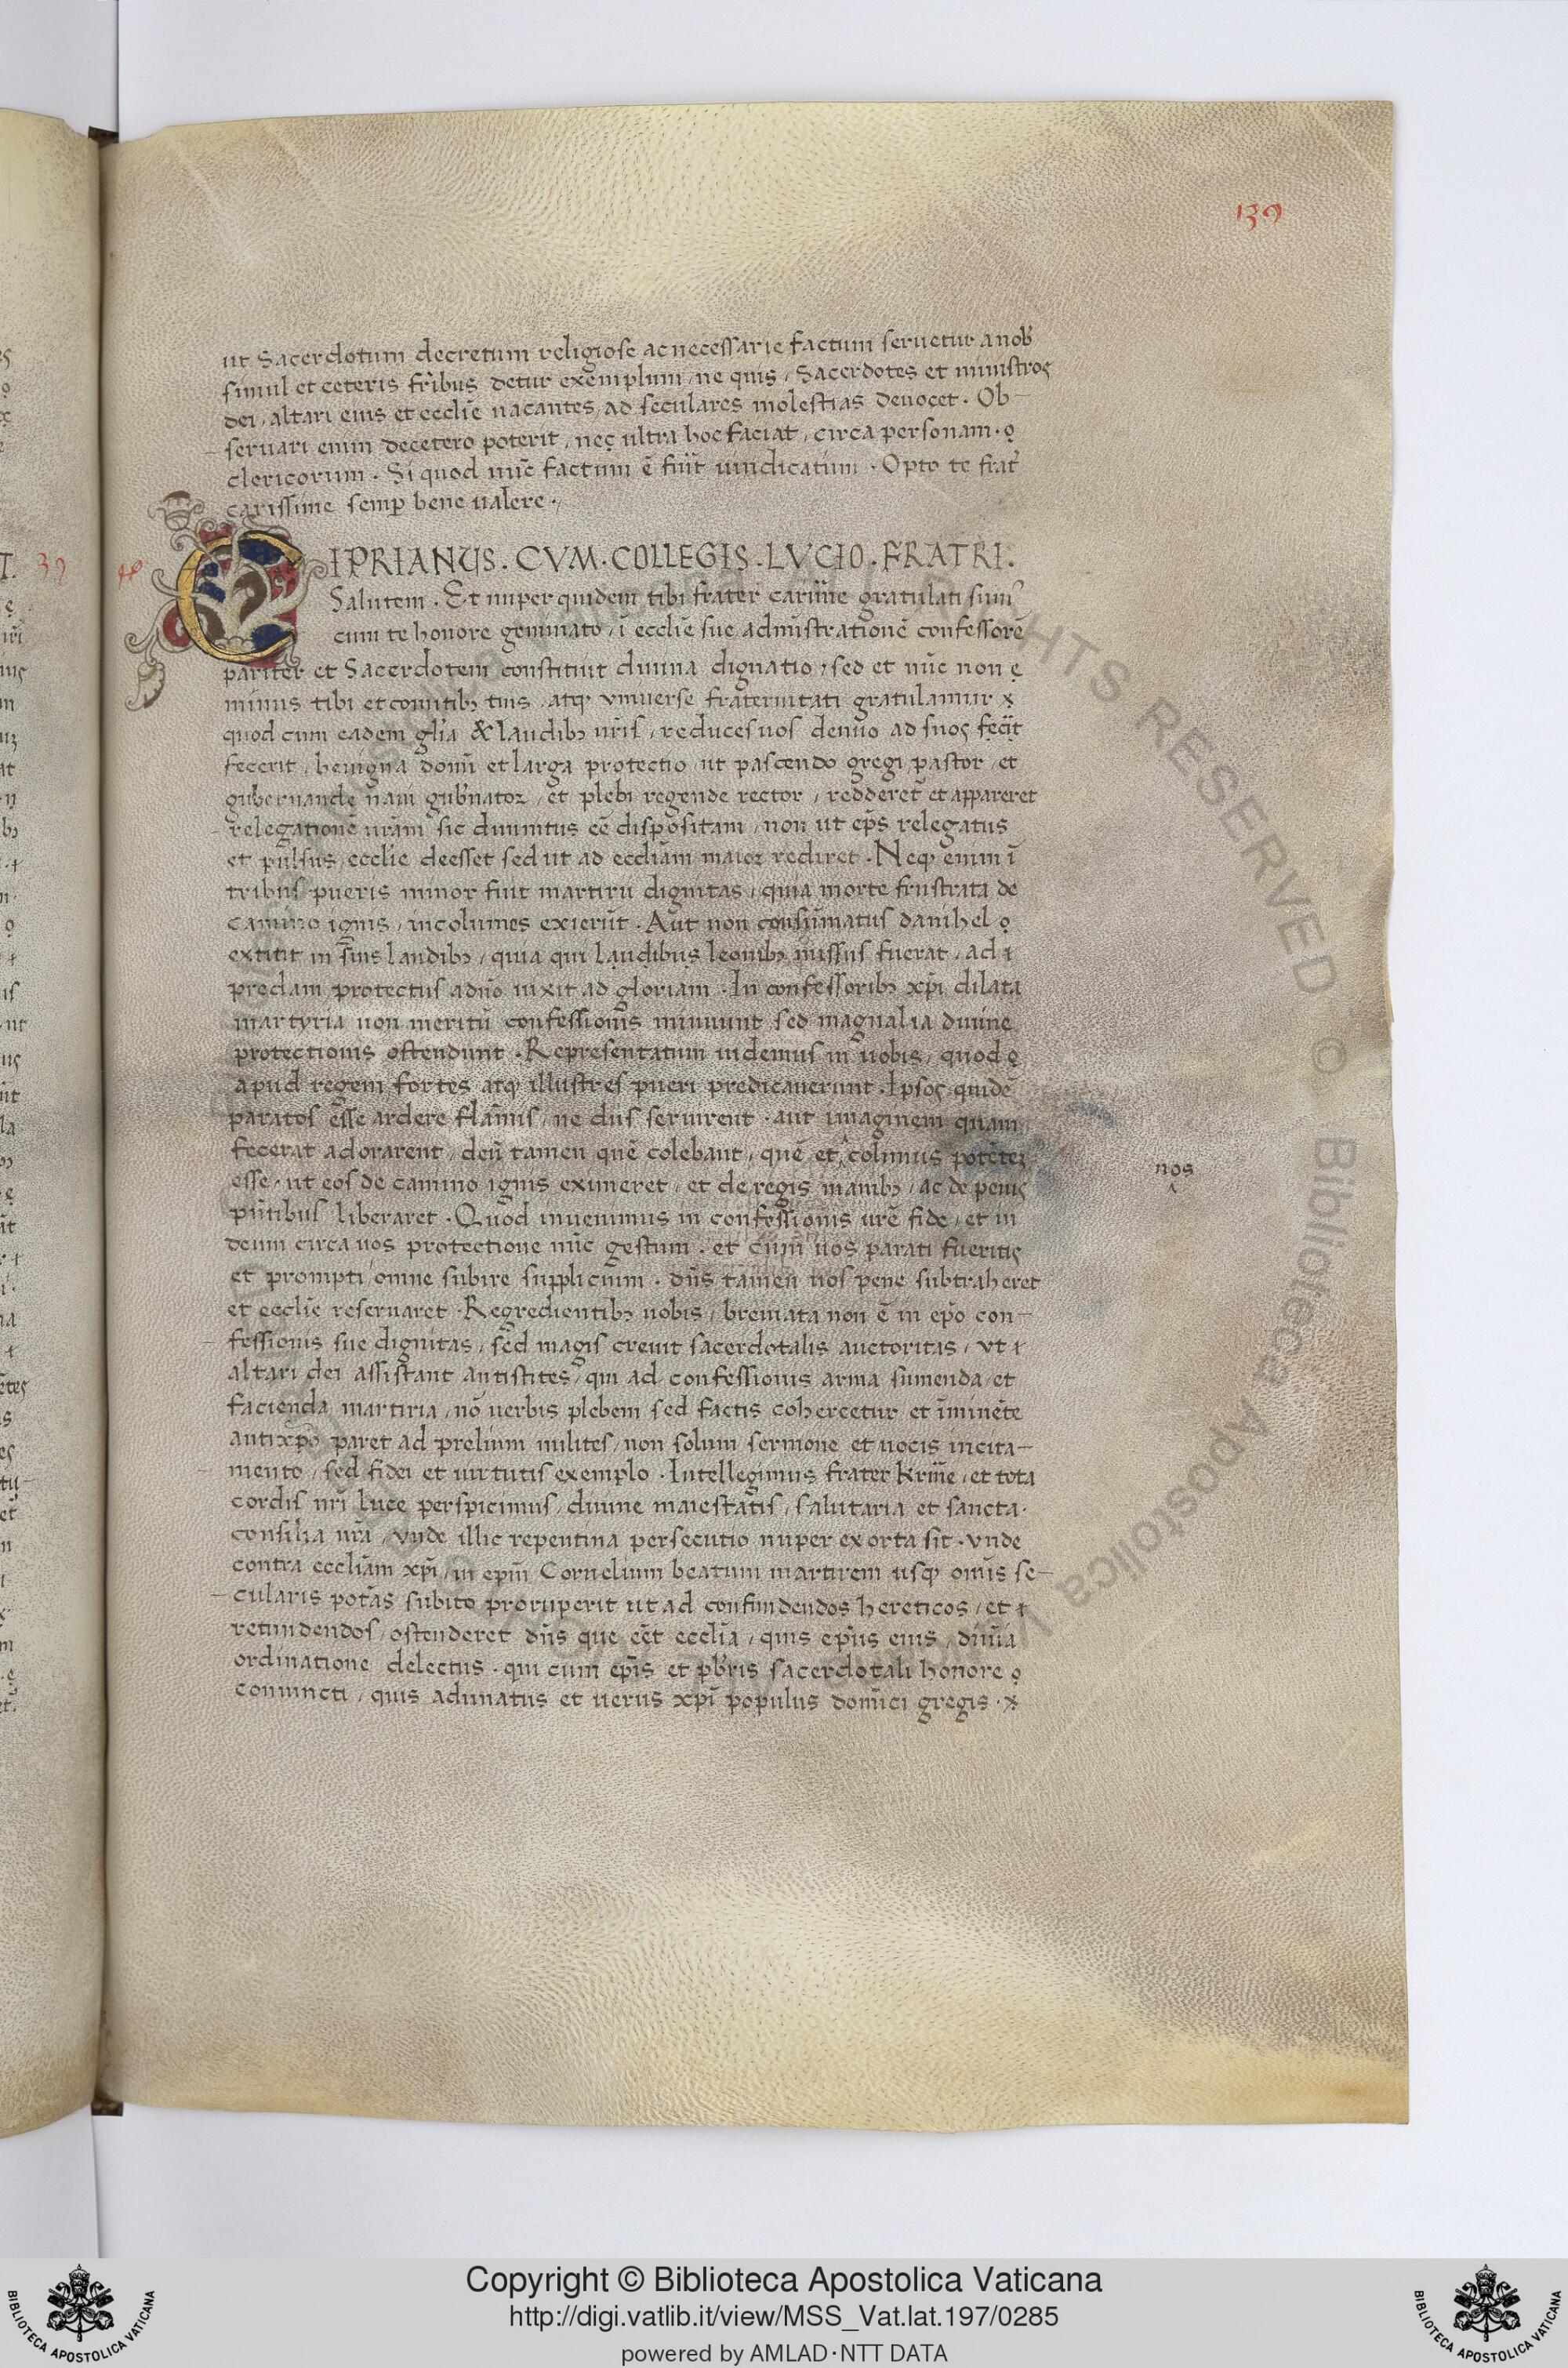 139
ut Sacerdotum decretum religiose ac necessarie factum seruetur a nob'
simul et ceteris fr̄ibus detur exemplum, ne quis, Sacerdotes et ministros
dei, altari eius et ecclīe uacantes, ad seculares molestias deuocet. Ob-
seruari enim decetero poterit, nec ultra hoc faciat, circa personam.
clericorum. Si quod nūc factum ē fuīt uindicatum. Opto te frat'
carissime semp̱ bene ualere.
39 40
CIPRIANUS. CVM. COLLEGIS. LVCIO. FRATRI.
Salutem. Et nuper quidem tibi frater carīme gratulati sum'
cum te honore geminato, ī ecclīe sue admīstrationē confessorē
pariter et Sacerdotem constituit diuina dignatio, sed et nūc non
minus tibi et comitibꝫ tuis, atqꝫ vniuerse fraternitati gratulamur
quod cum eadem gl̄ia & laudibꝫ ur̄is, reduces uos denuo ad suos fecīt
fecerit, benigna domī et larga protectio, ut pascendo gregi pastor, et
gubernande nāui gub'nator, et plebi regende rector, redderet' et appareret
relegationē ur̄am sic diuinitus eē dispositam, non ut ep̄s relegatus
et pulsus, ecclīe deesset sed ut ad ecclīam maior rediret. Neqꝫ enim ī
tribus pueris minor fuit martirū dignitas, quia morte frustrata de
camino ignis, incolumes exierūt. Aūt non consūmatus danihel
extitit in suis laudibꝫ, quia qui laudibus leonibꝫ missus fuerat, ad
predam protectus a dn̄o uixit ad gloriam. In confessoribꝫ xp̄i dilata
martyria non meritū confessionis minuunt, sed magnalia diuine
protectionis ostendunt. Representatum uidemus in uobis, quod
apud regem fortes atqꝫ illustres pueri predicauerunt. Ipsos quidē
paratos esse ardere flam̄is, ne diis seruirent. aut imaginem quam
fecerat adorarent, deū tamen quē colebant, quē et ‸ colimus potētez
nos
esse, ut eos de camino ignis eximeret, et de regis manibꝫ, ac de penis
pn̄tibus liberaret. Quod inuenimus in confessionis ur̄e fide, et in
deum circa uos protectione nūc gestum. et cum uos parati fueritis
et prompti omne subire supplicium. dn̄s tamen uos pene subtraheret
et ecclīe reseruaret. Regredientibꝫ uobis, breuiata non ē in ep̄o con-
fessionis sue dignitas, sed magis creuit sacerdotalis auctoritas, vt
altari dei assistant antistites, qui ad confessionis arma sumenda, et
facienda martiria, nō uerbis plebem sed factis cohercetur et īminēte
antixp̄o paret ad prelium milites, non solum sermone et uocis incita-
mento, sed fidei et uirtutis exemplo. Intellegimus frater krīme, et tota
cordis nr̄i luce perspicimus, diuine maiestatis, salutaria et sancta.
consilia nr̄a, vnde illic repentina persecutio nuper exorta sit. vnde
contra ecclīam xp̄i, in ep̄m Cornelium beatum martirem usqꝫ om̄is se-
cularis potās subito proruperit ut ad confundendos hereticos, et
retundendos, ostenderet dn̄s que eēt ecclīa, quis ep̄us eius, diuīa
ordinatione delectus. qui cum ep̄is et pb'ris sacerdotali honore
coniuncti, quis adunatus et uerus xp̄i populus domīci gregis.
Copyright © Biblioteca Apostolica Vaticana
http://digi.vatlib.it/view/MSS_Vat.lat.197/0285
powered by AMLAD·NTT DATA
BIBLIOTECA APOSTOLICA VATICANA
BIBLIOTECA APOSTOLICA VATICANA